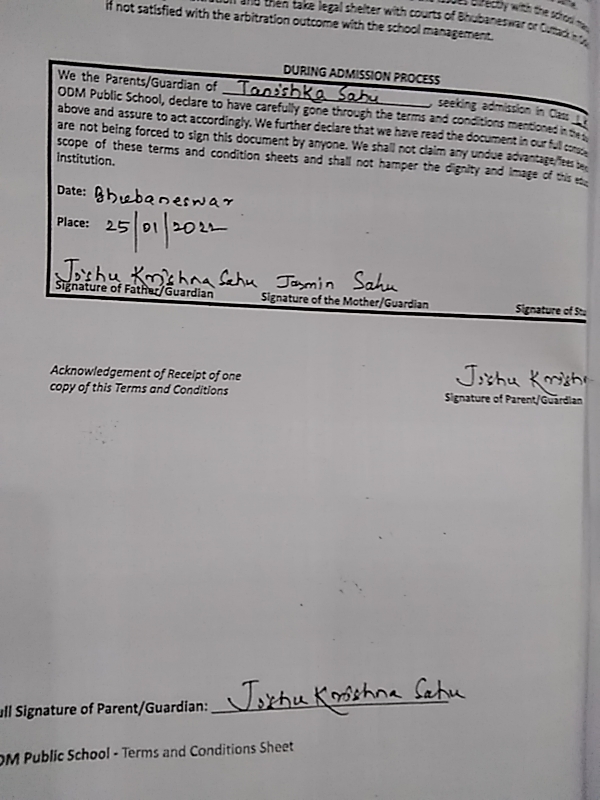 and then take legal shelter with courts of Bhubaneswar or Cuttack in
directly with the school
if not satisfied with the arbitration outcome with the school management.
DURING ADMISSION PROCESS
We the Parents/Guardian of Tanishka Sahu, seeking admission in Class
ODM Public School, declare to have carefully gone through the terms and conditions mentioned in the
above and assure to act accordingly. We further declare that we have read the document in our full
are not being forced to sign this document by anyone. We shall not claim any undue advantage/fees
scope of these terms and condition sheets and shall not hamper the dignity and image of this
Institution.
Date: Bhubaneswar
Place: 25/01/2022
Jishu Krishna Sahu Jasmin Sahu
Signature of Father/Guardian Signature of the Mother/Guardian Signature of
Acknowledgement of Receipt of one
copy of this Terms and Conditions
Jishu Krish
Signature of Parent/Guardian
ull Signature of Parent/Guardian: Jishu Krishna Sahu
DM Public School - Terms and Conditions Sheet